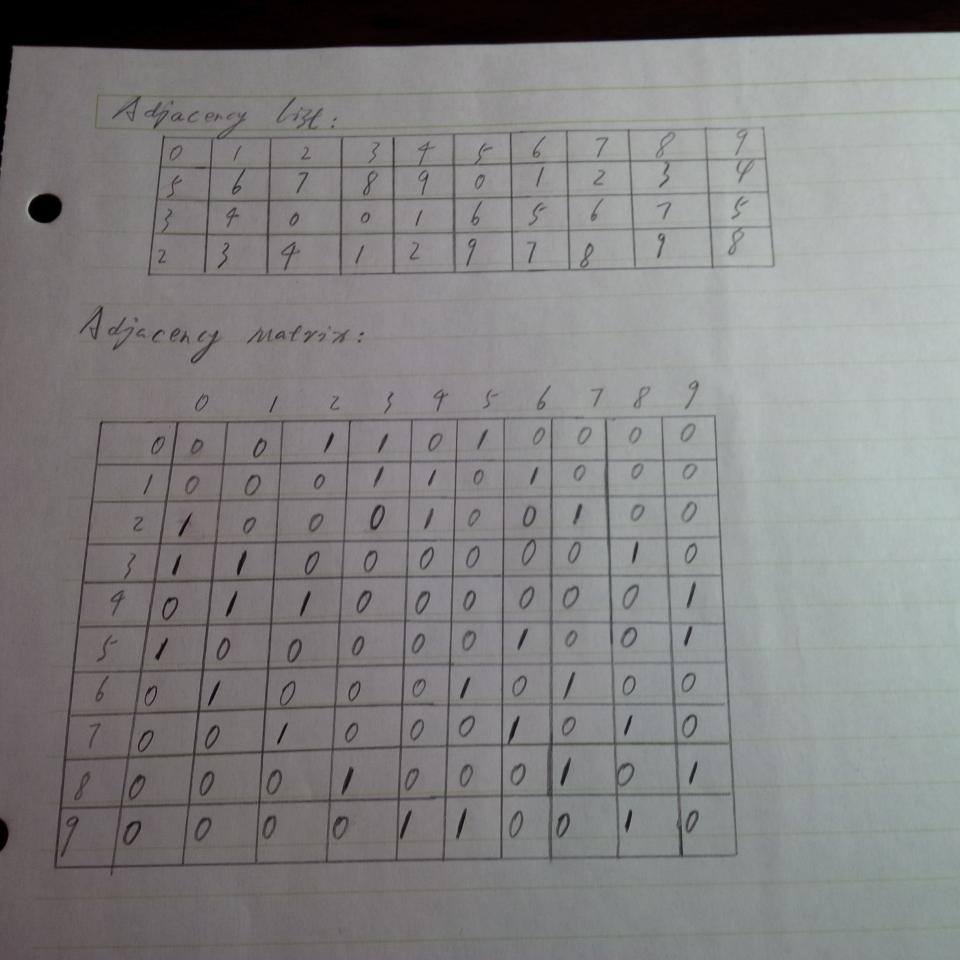 Adjacency list:
0 1 2 3 4 5 6 7 8 9
5 6 7 8 9 0 1 2 3 4
3 4 0 0 1 6 5 6 7 5
2 3 4 1 2 9 7 8 9 8
Adjacency matrix:
0 1 2 3 4 5 6 7 8 9
0 0 0 1 1 0 1 0 0 0 0
1 0 0 0 1 1 0 1 0 0 0
2 1 0 0 0 1 0 0 1 0 0
3 1 1 0 0 0 0 0 0 1 0
4 0 1 1 0 0 0 0 0 0 1
5 1 0 0 0 0 0 1 0 0 1
6 0 1 0 0 0 1 0 1 0 0
7 0 0 1 0 0 0 1 0 1 0
8 0 0 0 1 0 0 0 1 0 1
9 0 0 0 0 1 1 0 0 1 0